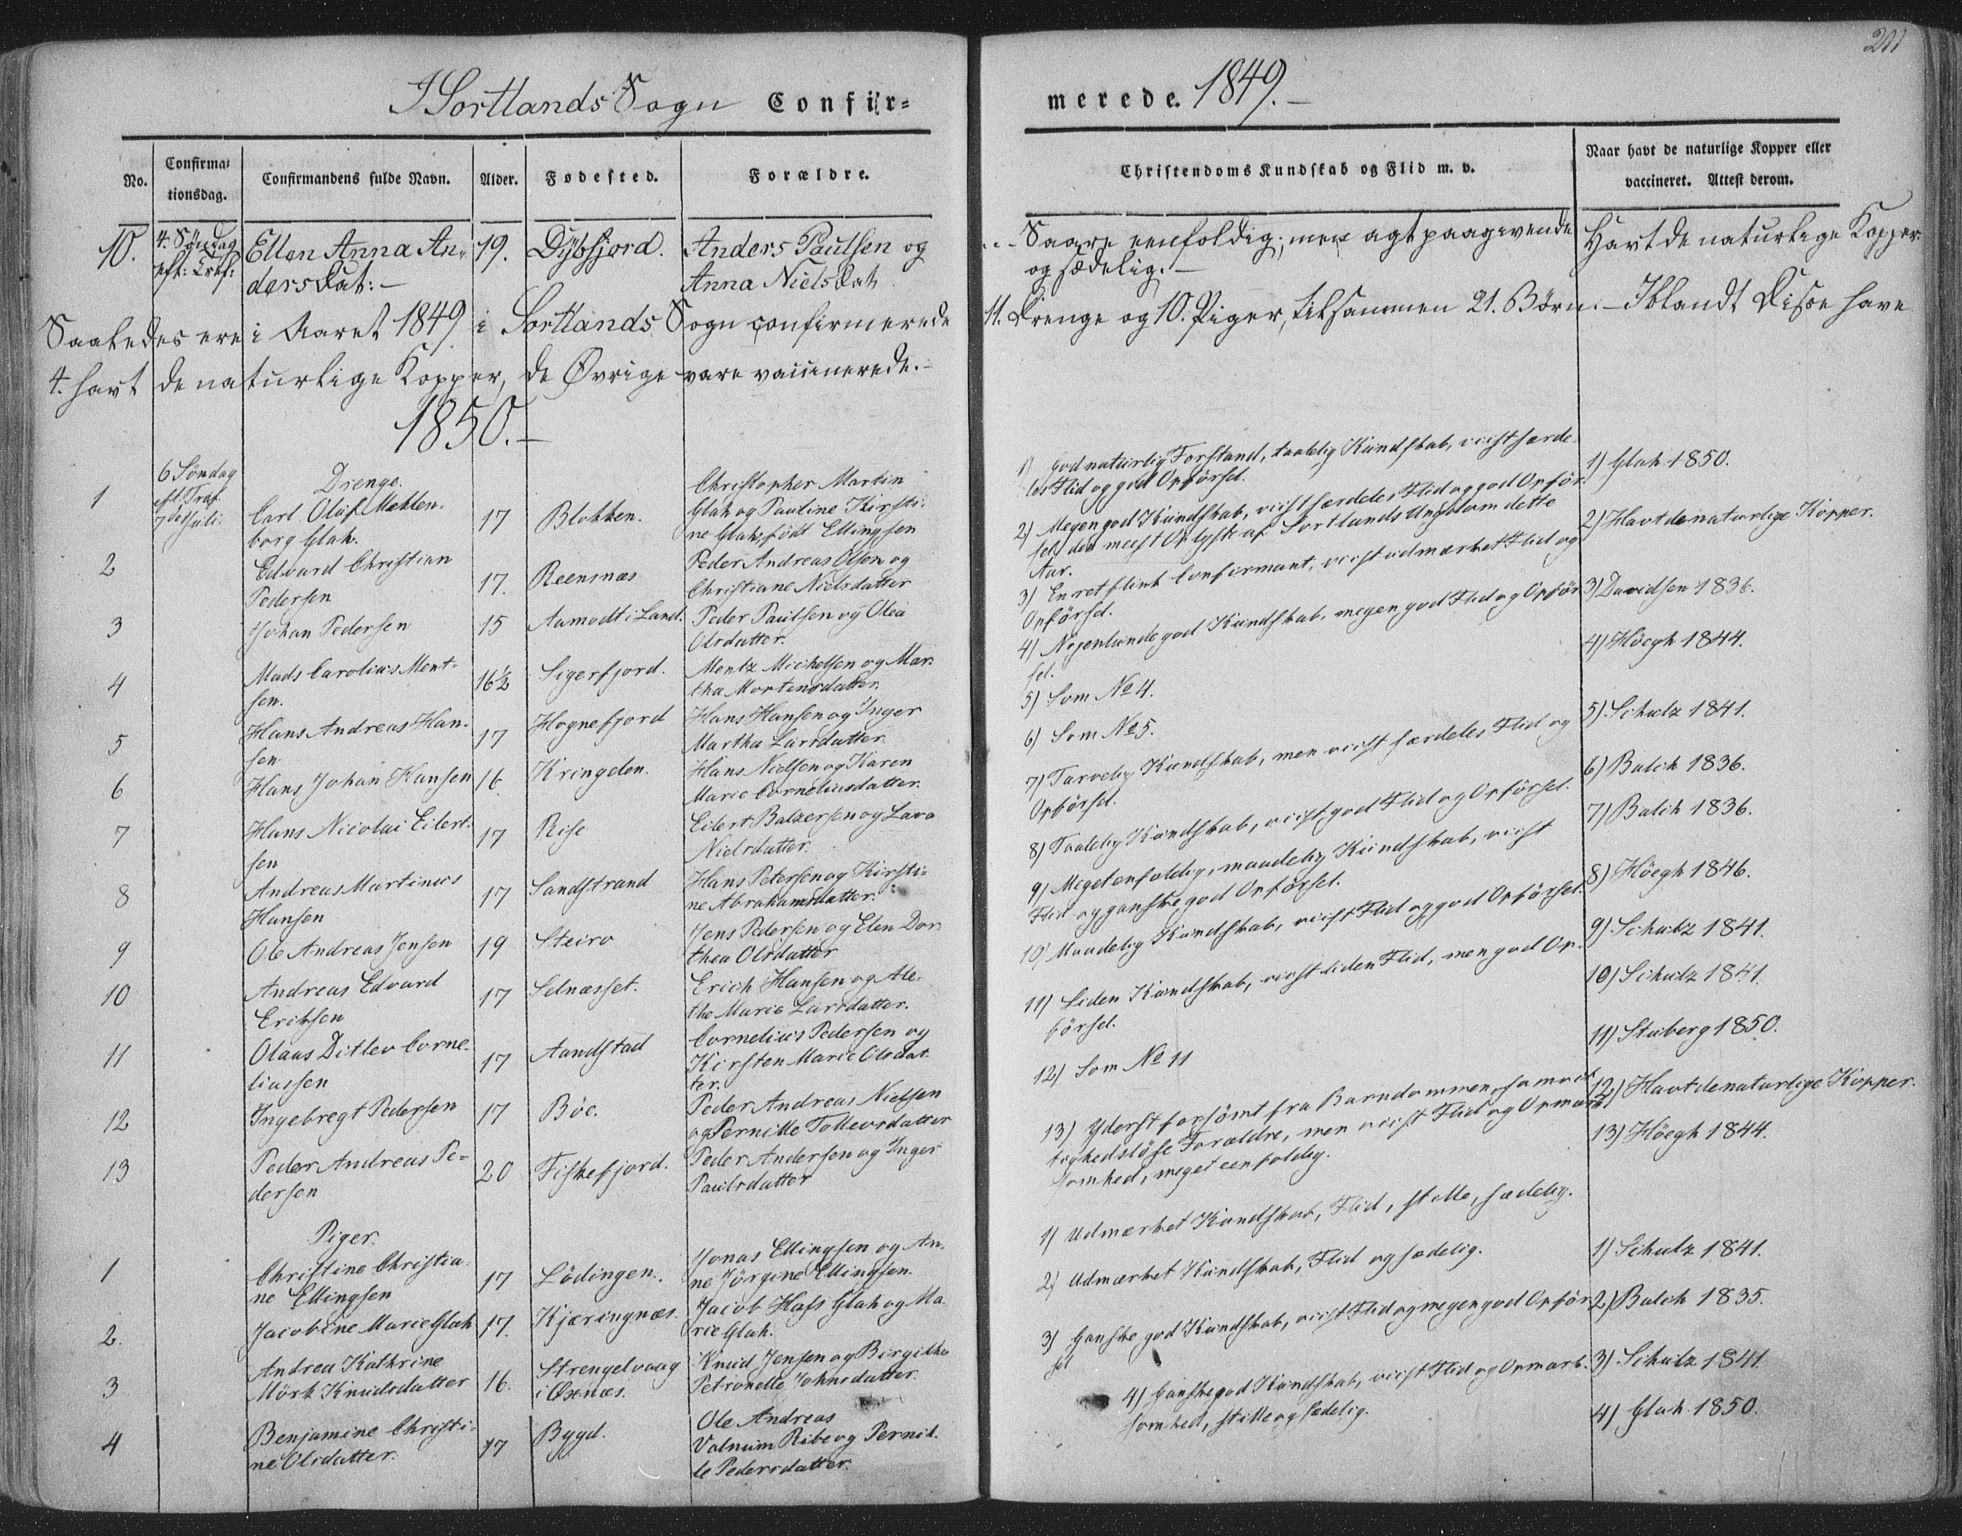 I Sortlands Sogn Confir-
No.
Confirma-
tionsdag.
Confirmandens fulde Navn.
Alder.
Fødested.
Forældre.
10. 4. Søndag Ellen Anna An- 19. Dybfjord. Anders Paulsen og
eft: Tref: dersDat: — Anna NielsDat
Saaledes ere i Aaret 1849 i Sortlands Sogn confirmerede
4. havt de naturlige Kopper, de Øvrige vare vaccinerede. —
1850. —
6 Søndag
eft. Tref.
7de Juli.
Drenge.
1 Carl Oluf Mehlen- 17 Blokken. Christopher Martin
borg Glah. Glah og Pauline Kirsti-
ne Glah, født Ellingsen
2 Edvard Christian 17. Reensnæs Peder Andreas Olsen og
Pedersen Christiane Nielsdatter
3 Johan Pedersen 15 Aamodt i Land. Peder Paulsen og Olea
Olsdatter.
4 Mads Carolius Ment- 16½ Sigerfjord. Mentz Michelsen og Mar-
sen. tha Mortensdatter.
5 Hans Andreas Han- 17 Hognefjord Hans Hansen og Inger
sen Martha Larsdatter
6 Hans Johan Hansen 16. Kringelen. Hans Nielsen og Karen
Marie Corneliusdatter.
7 Hans Nicolai Eilert- 17 Rise Eilert Balzersen og Lava
sen Nielsdatter.
8 Andreas Martinus 17 Sandstrand Hans Petersen og Kirsti-
Hansen ne Abrahamsdatter.
9 Ole Andreas Jensen 19 Steiro Jens Pedersen og Elen Dor-
thea Olsdatter
10 Andreas Edvard 17 Selnæsset. Erich Hansen og Ale-
Eriksen the Marie Larsdatter.
11 Olaus Ditlev Corne- 17 Aandstad Cornelius Pedersen og
liussen Kirsten Marie Olsdat-
ter.
12 Ingebregt Pedersen 17 Böe. Peder Andreas Nielsen
og Pernille Tollevsdatter
13 Peder Andreas Pe- 20 Fiskefjord. Peder Andersen og Inger
dersen Paulsdatter
Piger.
1 Christine Christia- 17 Lödingen. Jonas Ellingsen og An-
ne Ellingsen ne Jörgine Ellingsen.
2. Jacobine Marie Glah 17. Kjæringnæs. Jacob Hass Glah og Ma-
rie Glah.
3 Andrea Kathrine 16. Strengelvaag Knud Jensen og Birgithe
Mörk Knudsdatter i Öxnæs. Petronelle Johnsdatter.
4 Benjamine Christi- 17 Bygd. Ole Andreas
ne Olsdatter. Valnum Ribe og Pernil-
le Pedersdatter.
201
merede. 1849. —
Christendoms Kundskab og Flid m. v.
Naar havt de naturlige Kopper eller
vaccineret. Attest derom.
Saare eenfoldig; men agtpaagivende Havt de naturlige Kopper.
og sædelig. —
11. Drenge og 10. Piger, tilsammen 21. Børn. — Iblandt Disse have
1) God naturlig Forstand, taalelig Kundskab, viist særde-
les Flid og god Opförsel.
2) Megen god Kundskab, viist særdeles Flid og god Opför-
sel, den meest Oplyste af Sortlands Ungdom dette
Aar.
3) En ret flink Confirmant, viist udmærket Flid og
Opförsel.
4) Nogenlunde god Kundskab, megen god Flid og Opför-
sel.
5) Som No 4.
6) Som No 5.
7) Tarvelig Kundskab, men viist særdeles Flid og
Opförsel.
8) Taalelig Kundskab, viist god Flid og Opförsel.
9) Meget enfoldig, maadelig Kundskab, viist
Flid og ganske god Opförsel.
10) Maadelig Kundskab, viist Flid og god Opförsel.
11) Liden Kundskab, viist liden Flid, men god Op-
försel.
12) Som No 11
13) Yderst forsömt fra Barndommen,
Forældre, men viist Flid og Opmærk-
somhed, meget eenfoldig.
1) Udmærket Kundskab, Flid, stille, sædelig.
2) Udmærket Kundskab, Flid og sædelig.
3) Ganske god Kundskab, viist Flid og megen god Opför-
sel
4) Ganske god Kundskab, viist Flid og Opmærk-
somhed, stille og sædelig.
1) Glah 1850.
2) Havt de naturlige Kopper.
3) Davidsen 1836.
4) Höegh 1844.
5) Schulz 1841.
6) Balch 1836.
7) Balch 1836.
8) Höegh 1846.
9) Schulz 1841.
10) Schulz 1841.
11) Stuberg 1850.
12) Havt de naturlige Kopper.
13) Höegh 1844.
1) Schulz 1841.
2) Balch 1835.
3) Schulz 1841.
4) Glah 1850.